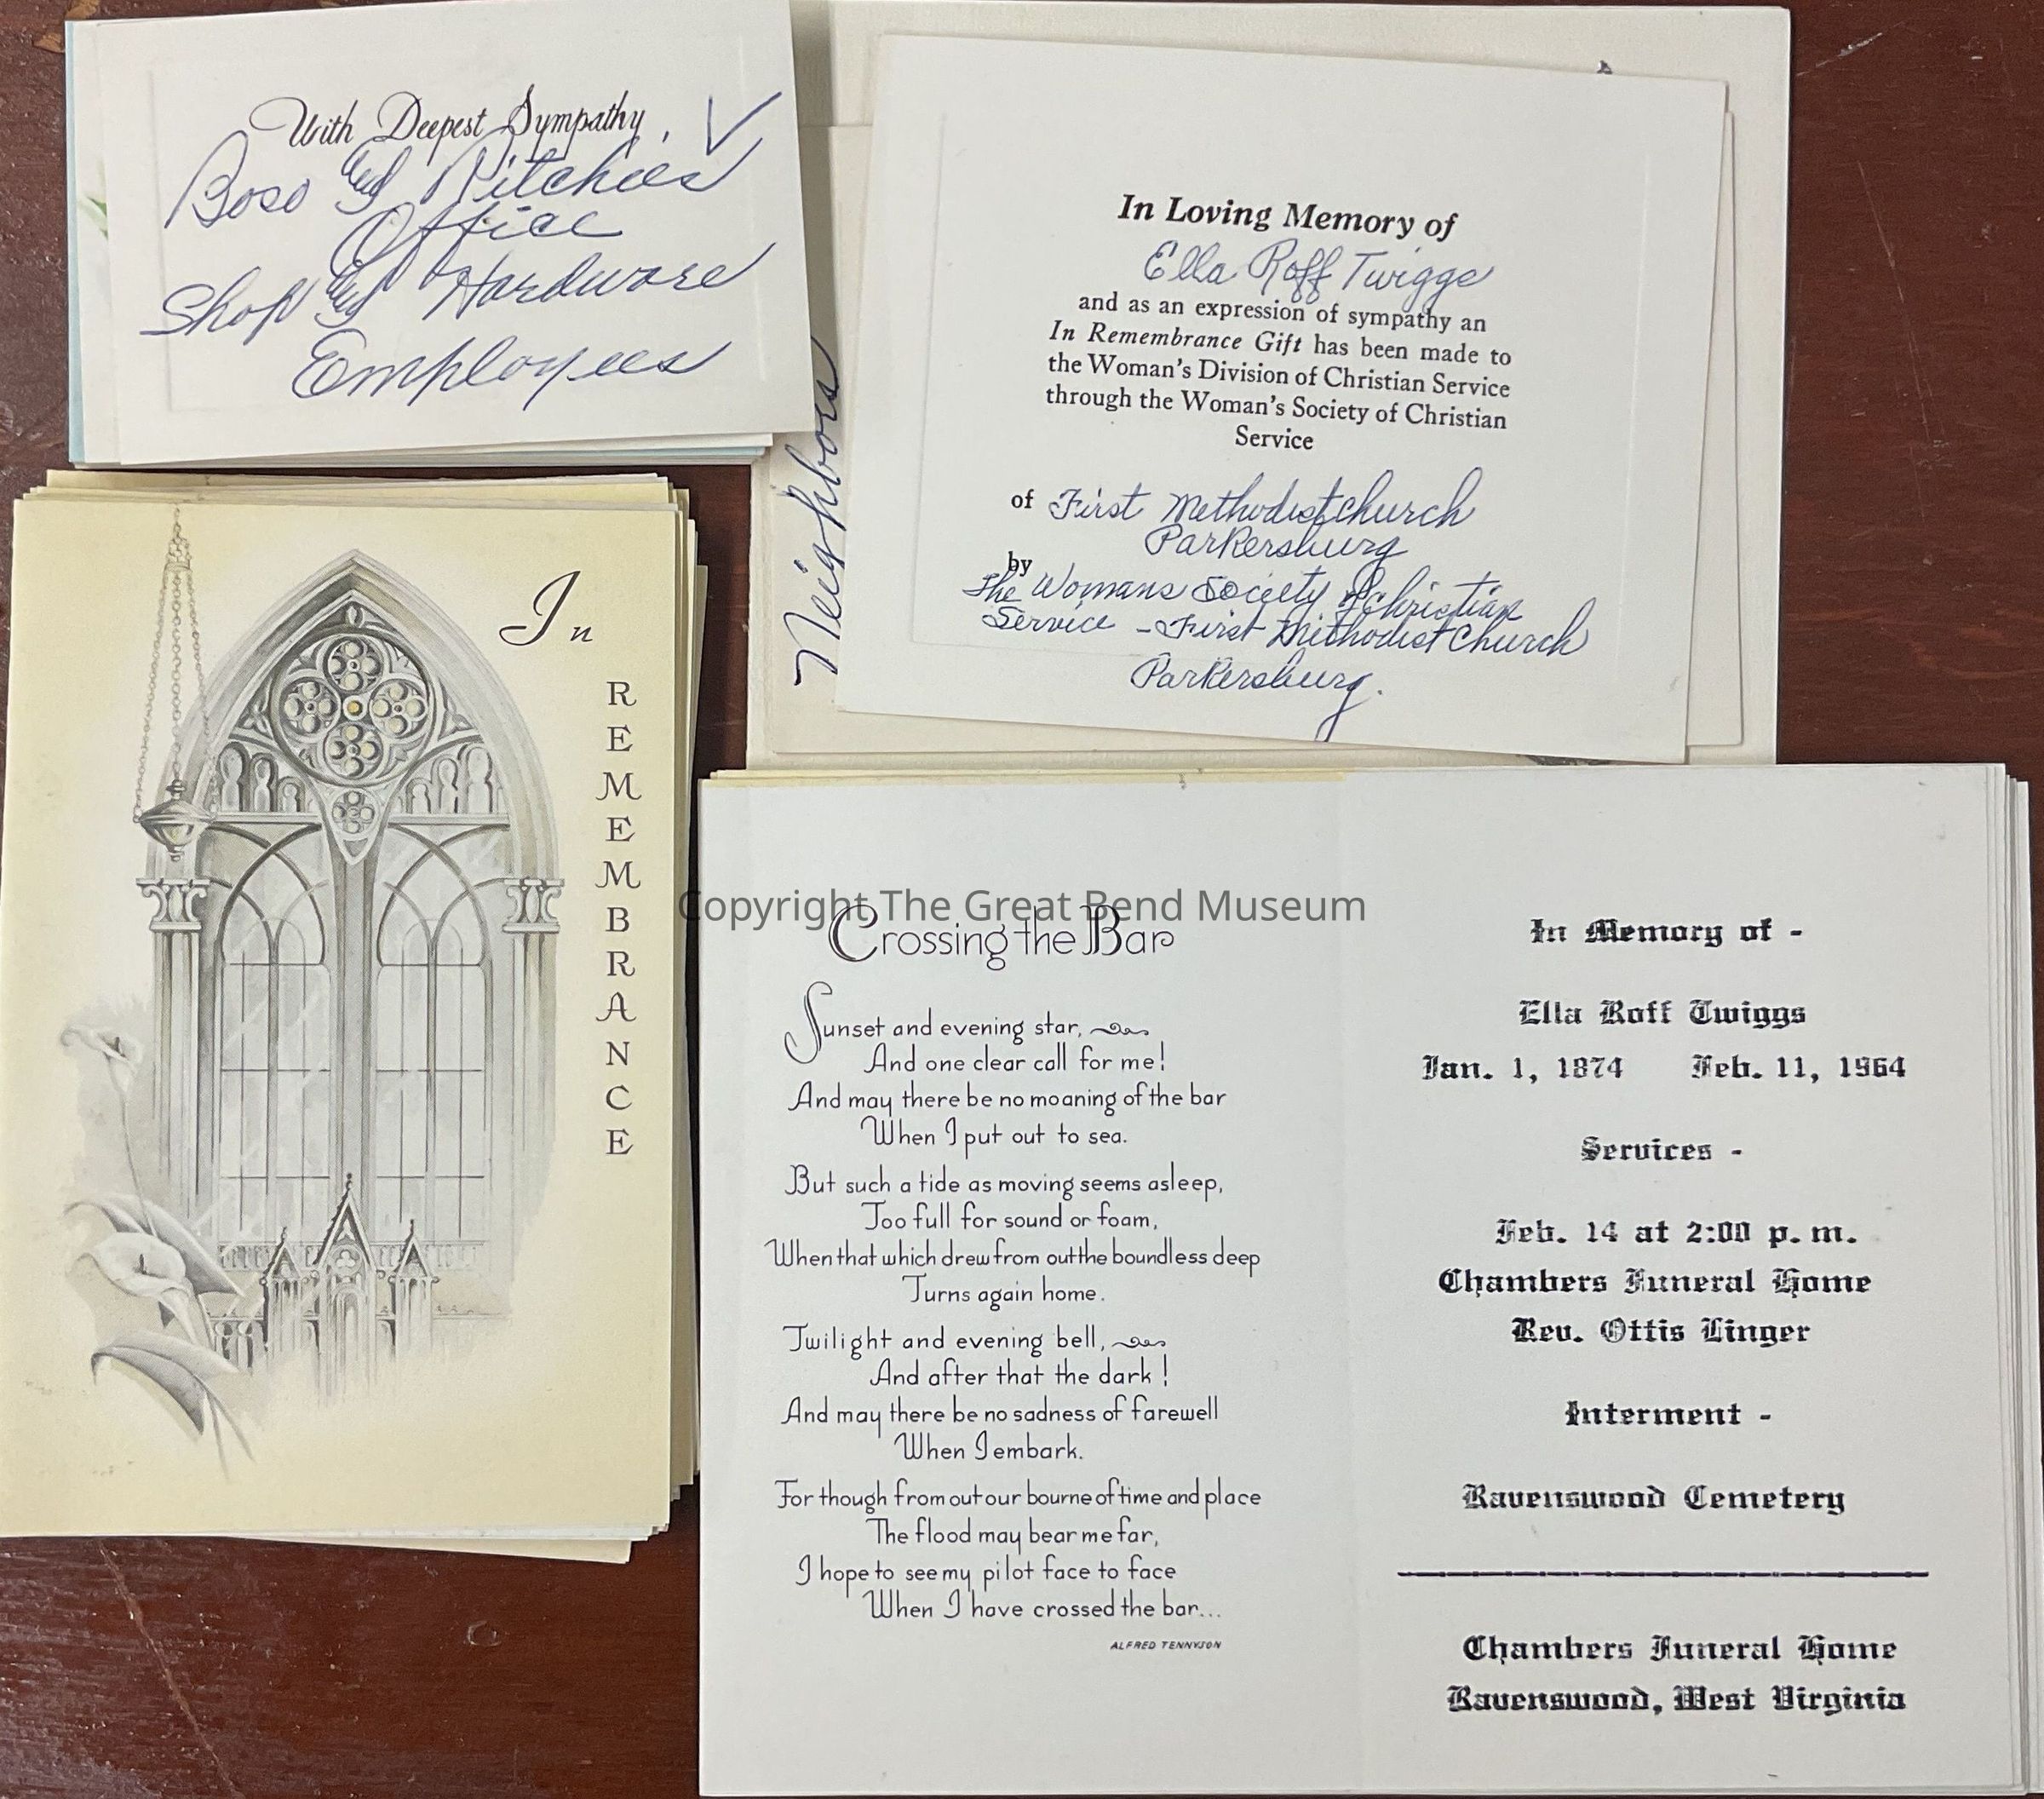 With Deepest Sympathy,
Boso & Ritchies
Office
Shop & Hardware
Employees
Neighbors
In Loving Memory of
Ella Roff Twiggs
and as an expression of sympathy an
In Remembrance Gift has been made to
the Woman's Division of Christian Service
through the Woman's Society of Christian
Service
of First Methodist Church
Parkersburg
by
The Womans Society of Christian
Service - First Methodist Church
Parkersburg.
In
REMEMBRANCE
Copyright The Great Bend Museum
Crossing the Bar
Sunset and evening star,
And one clear call for me!
And may there be no moaning of the bar
When I put out to sea.
But such a tide as moving seems asleep,
Too full for sound or foam,
When that which drew from out the boundless deep
Turns again home.
Twilight and evening bell,
And after that the dark!
And may there be no sadness of farewell
When I embark.
For though from out our bourne of time and place
The flood may bear me far,
I hope to see my pilot face to face
When I have crossed the bar...
ALFRED TENNYSON
In Memory of -
Ella Roff Twiggs
Jan. 1, 1874 Feb. 11, 1964
Services -
Feb. 14 at 2:00 p. m.
Chambers Funeral Home
Rev. Ottis Linger
Interment -
Ravenswood Cemetery
Chambers Funeral Home
Ravenswood, West Virginia